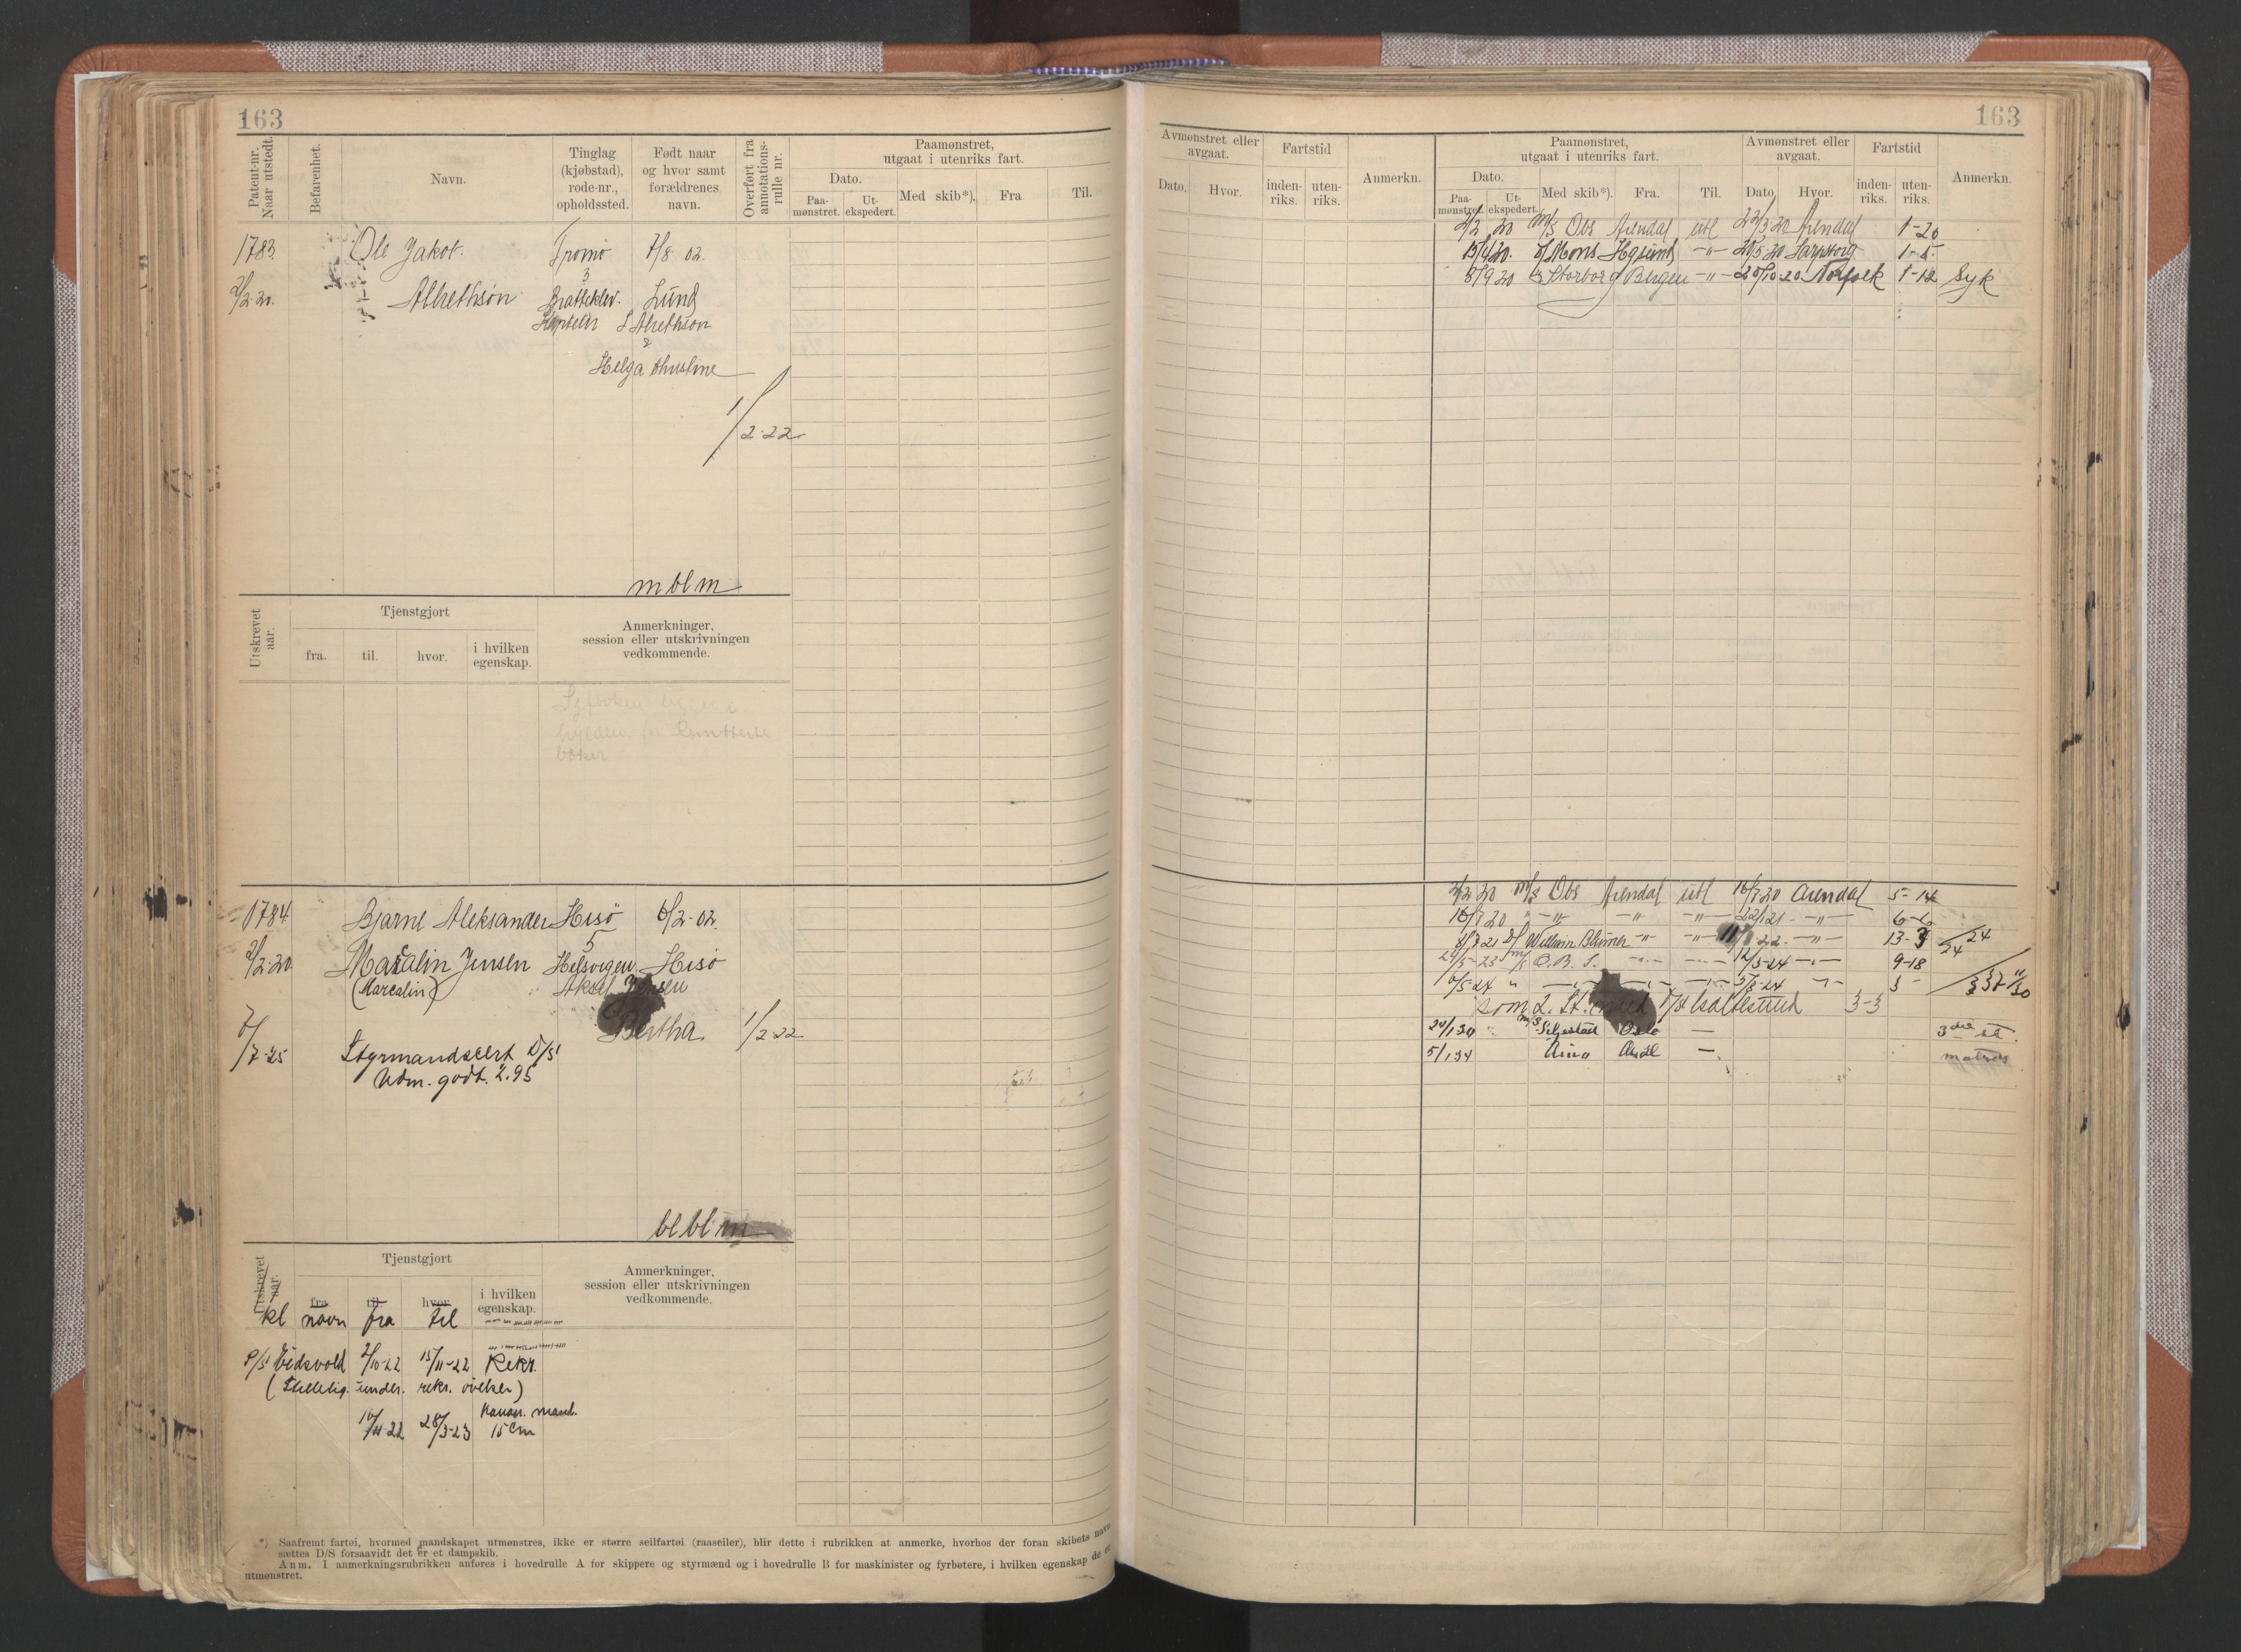 163
Patent-nr. Naar utstedt.
Befarenhet.
Navn.
Tinglag (kjøbstad), rode-nr., opholdssted.
Født naar og hvor samt forældrenes navn.
Overført fra annotations-rulle nr.
Paamønstret, utgaat i utenriks fart.
Dato.
Paa-mønstret.
Ut-ekspedert.
Med skib*).
Fra
Til.
1783 Ole Jakob Tromø 7/8 02.
3
2/2-20. Albrethsøn Bratteklev. Lund
Albrethson
&
Helga
1/2-22
m bl m
Utskrevet aar.
Tjenstgjort
fra.
til.
hvor.
i hvilken egenskap.
Anmerkninger, session eller utskrivningen vedkommende.
bøker
1784 Bjarne Aleksander Hisø 6/2-02.
5
2/2-20 Marcalin Jensen Hisø
(Marcalin) Aksel Jensen
Bertha 1/2-22
7/7-25 Styrmandscert D/S
Udm. godt. 2.95
bl bl m
Utskrevet aar.
Tjenstgjort
fra til. hvor
i hvilken egenskap.
Anmerkninger, session eller utskrivningen vedkommende.
kl navn fra til
P/S Eidsvold 2/10-22 15/11-22 Rekr.
under. rekr. øvelser)
16/11-22 28/3-23 Kanon. mand.
15 cm
*) Saafremt fartøi, hvormed mandskapet utmønstres, ikke er større seilfartøi (raaseiler), blir dette i rubrikken at anmerke, hvorhos der foran skibets navn
sættes D/S forsaavidt det er et dampskib.
Anm. I anmerkningsrubrikken anføres i hovedrulle A for skippere og styrmænd og i hovedrulle B for maskinister og fyrbøtere, i hvilken egenskap de er
utmønstret.
163
Avmønstret eller avgaat.
Dato.
Hvor.
Fartstid
inden-riks.
uten-riks.
Anmerkn.
Paamønstret, utgaat i utenriks fart.
Dato.
Paa-mønstret.
Ut-ekspedert.
Med skib*).
Fra.
Til.
Avmønstret eller avgaat.
Dato.
Hvor.
Fartstid
inden-riks.
uten-riks.
Anmerkn.
2/2 20 M/S Obs Arendal utl 22/3 20 Arendal 1-20
15/4 20. Mons -"- 20/5-20 Sarpsborg 1-5.
8/9 20 Storborg Bergen -"- 20/10-20 Norfolk 1-12 Syk
2/2 20 M/S Obs Arendal utl 16/7 20 Arendal 5-14
16/7 20 " -"- -"- -"- 22/1 21 -"- 6-6
D/S William Blumer -"- -"- 22. -"- 13-9 24/24
24/5-23 M/S O.B.S. -"- -"- 12/5-24 -"- 9-18
16/5-24 " -"- -"- 3
som 2. St. med 3-3
20/1 30 M/S Siljestad Oslo — 3die st.
5/1 34 Aino Ardl — matros